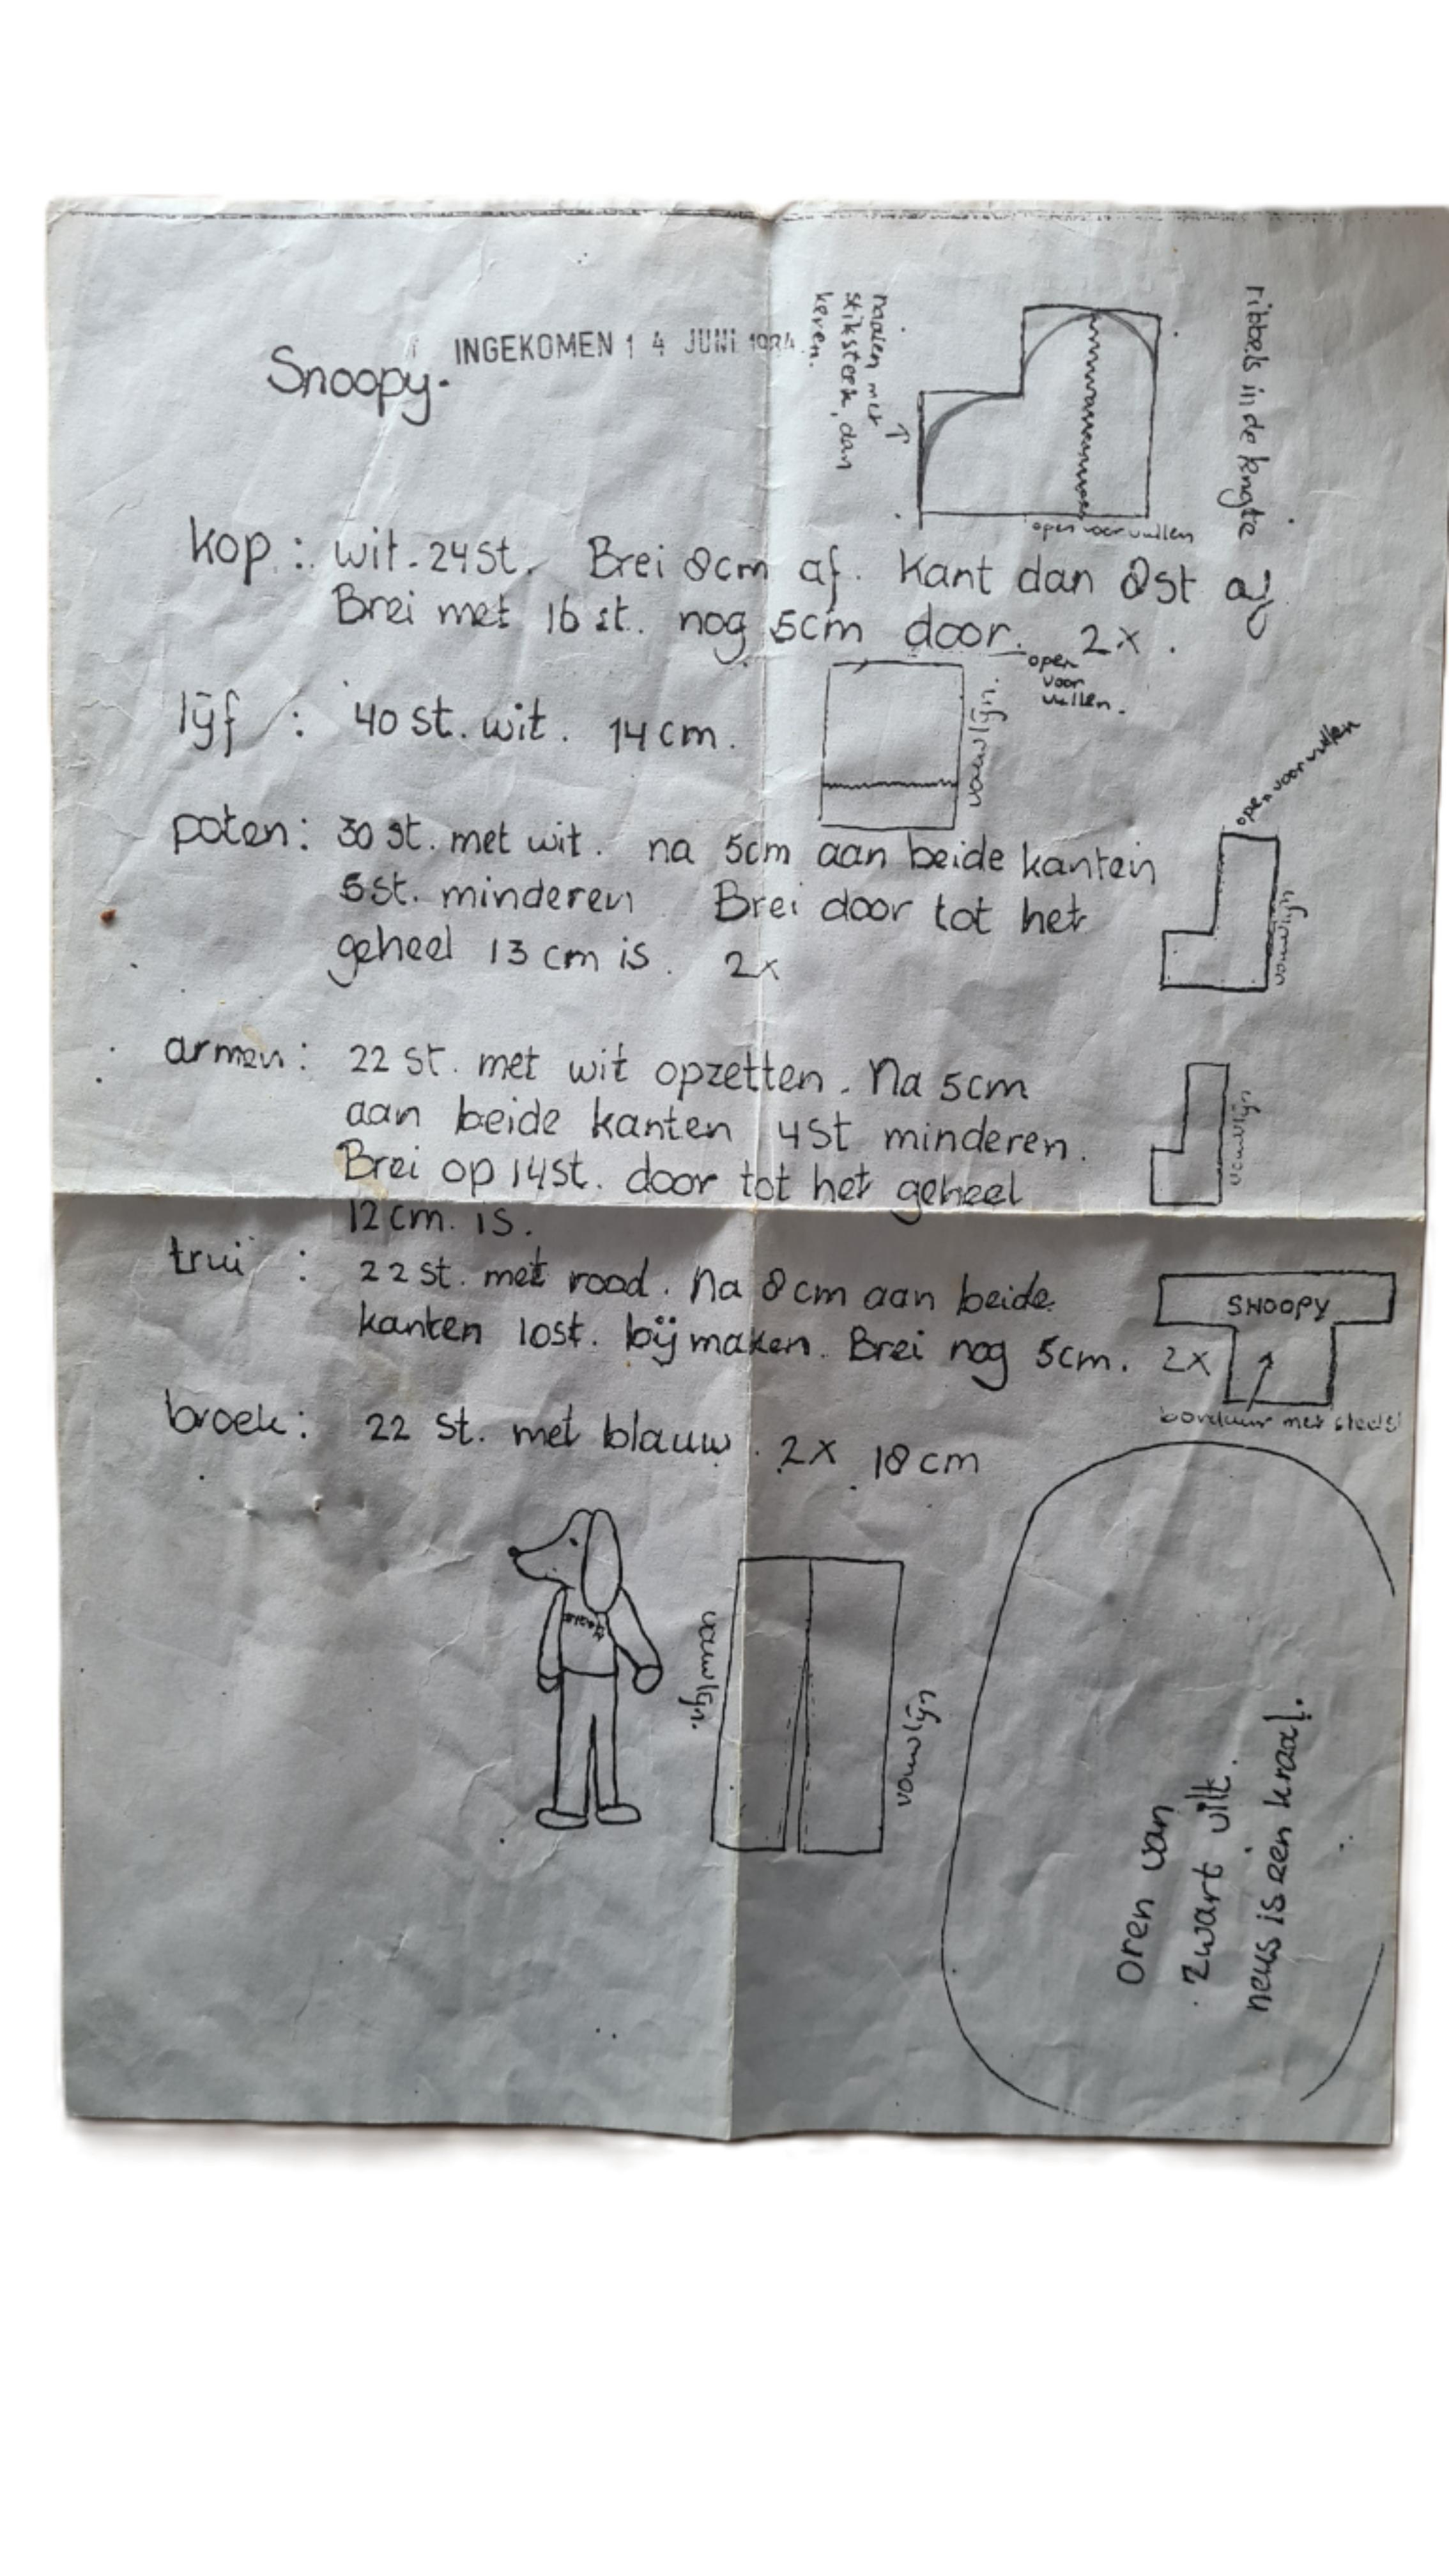 INGEKOMEN 14 JUNI 1984
Snoopy.
naaien met
stiksteek, dan
keren.
ribbels in de lengte
open voor vullen
kop: wit. 24 st. Brei 8cm af. Kant dan 8st af
Brei met 16 st. nog 5cm door. 2x.
open
voor
vullen.
vouwlijn.
lijf : 40 st. wit. 14 cm.
open voor vullen
poten: 30 st. met wit. na 5cm aan beide kanten
5st. minderen Brei door tot het
geheel 13 cm is. 2x
vouwlijn
armen: 22 st. met wit opzetten. Na 5cm
aan beide kanten 4st minderen.
Brei op 14st. door tot het geheel
12 cm. is.
vouwlijn
trui : 22 st. met rood. Na 8cm aan beide
kanten 10st. bij maken. Brei nog 5cm. 2x
SNOOPY
borduur met
broek: 22 st. met blauw. 2x 18cm
vouwlijn.
vouwlijn
Oren van
zwart vilt.
neus is een kraal.